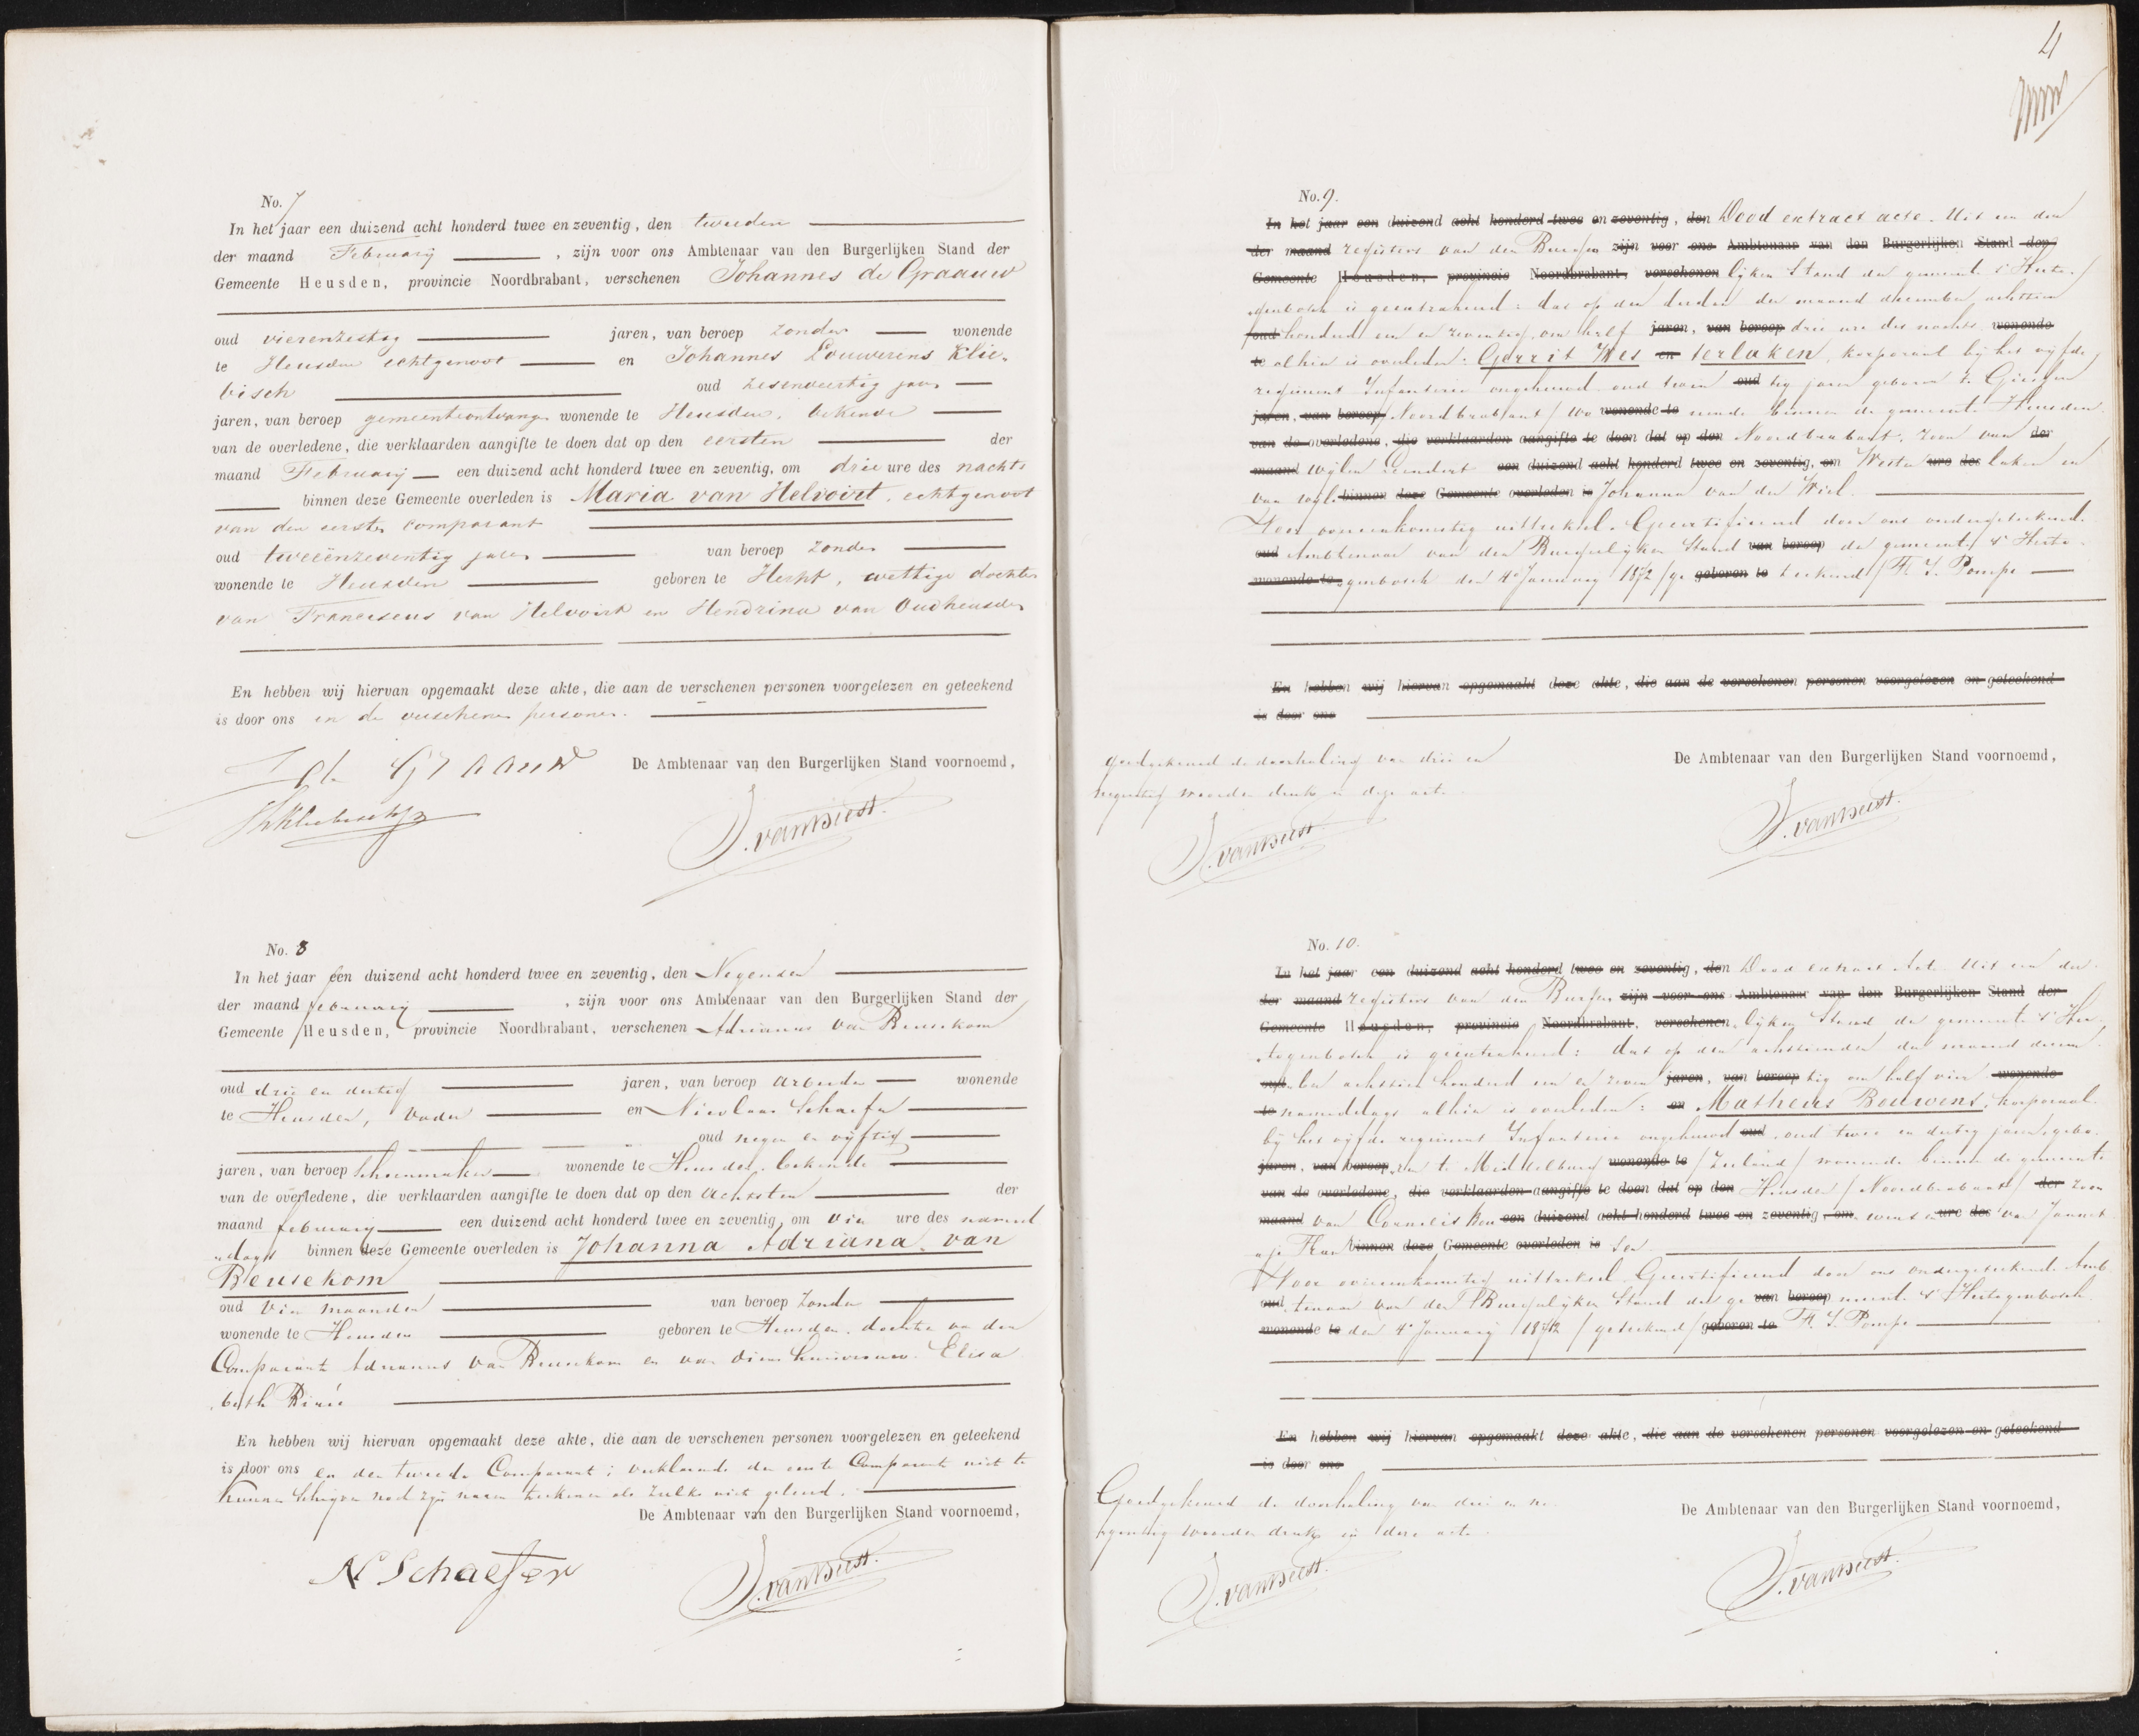 No. 7
In het jaar een duizend acht honderd twee en zeventig, den tweeden
der maand February, zijn voor ons Ambtenaar van den Burgerlijken Stand der
Gemeente Heusden, provincie Noordbrabant, verschenen Johannes de Graauw
oud vierenzestig jaren, van beroep zonder wonende
te Heusden echtgenoot en Johannes Louwerens Klie-
bisch oud zesenveertig jaren
jaren, van beroep gemeenteontvanger wonende te Heusden, bekende
van de overledene, die verklaarden aangifte te doen dat op den eersten der
maand February een duizend acht honderd twee en zeventig, om drie ure des nachts
binnen deze Gemeente overleden is Maria van Helvoirt, echtgenoot
van den eersten comparant
oud tweeënzeventig jaren van beroep zonder
wonende te Heusden geboren te Herpt, wettige dochter
van Franciscus van Helvoirt en Hendrina van Oudheusden
En hebben wij hiervan opgemaakt deze akte, die aan de verschenen personen voorgelezen en geteekend
is door ons en de verschenen personen.
J de Graauw
De Ambtenaar van den Burgerlijken Stand voornoemd,
J. van Diest.
No. 8
In het jaar een duizend acht honderd twee en zeventig, den Negenden
der maand february, zijn voor ons Ambtenaar van den Burgerlijken Stand der
Gemeente Heusden, provincie Noordbrabant, verschenen Adrianus van Beusekom
oud drie en dertig jaren, van beroep arbeider wonende
te Heusden, vader en Nicolaas Schaefer
oud negen en vijftig
jaren, van beroep schoenmaker wonende te Heusden, bekende
van de overledene, die verklaarden aangifte te doen dat op den achtsten der
maand february een duizend acht honderd twee en zeventig, om vier ure des namid
dags binnen deze Gemeente overleden is Johanna Adriana van
Beusekom
oud vier maanden van beroep zonder
wonende te Heusden geboren te Heusden, dochter van den
Comparant Adrianus van Beusekom en van diens huisvrouw Elisa
beth
En hebben wij hiervan opgemaakt deze akte, die aan de verschenen personen voorgelezen en geteekend
is door ons en den tweede Comparant; verklarende den eerste Comparant niet te
kunnen schrijven noch zijn naam teekenen als zulks niet geleerd.
De Ambtenaar van den Burgerlijken Stand voornoemd,
N Schaefer
J. van Diest.
4
No. 9.
In het jaar een duizend acht honderd twee en zeventig, den Dood extract acte. Uit een der
der maand registers van den Burger zijn voor ons Ambtenaar van den Burgerlijken Stand der
Gemeente Heusden, provincie Noordbrabant, verschenen lijken Stand der gemeente s'Herto-
genbosch is geextraheerd: dat op den derden der maand december achttien
oud honderd een en zeventig, om half jaren, van beroep drie ure des nachts wonende
te alhier is overleden: Gerrit Wes en terlaken, korporaal bij het vijfde
regiment Infanterie ongehuwd oud twin oud tig jaren geboren te Giessen
jaren, van beroep /Noordbrabant/ wo wonende te nende binnen de gemeente Heusden
van de overledene, die verklaarden aangifte te doen dat op den Noordbrabant, zoon van der
maand wijlen een duizend acht honderd twee en zeventig, om Wester ure des laken en
van wijle binnen deze Gemeente overleden is Johanna van der Wiel.
Voor overeenkomstig uittreksel. Gecertifieerd door ons ondergeteekend.
oud Ambtenaar van den Burgerlijken Stand van beroep der gemeente s'Herto-
wonende te genbosch den 4 January 1872 /ge geboren te teekend/ Pompe
En hebben wij hiervan opgemaakt deze akte, die aan de verschenen personen voorgelezen en geteekend
is door ons
Goedgekeurd de doorhaling van drie en
negentig woorden druks in deze acte.
De Ambtenaar van den Burgerlijken Stand voornoemd,
J. van Diest.
J. van Diest.
No. 10.
In het jaar een duizend acht honderd twee en zeventig, den Dood extract Acte. Uit een der
der maand registers van den Burger zijn voor ons Ambtenaar van den Burgerlijken Stand der
Gemeente Heusden, provincie Noordbrabant, verschenen lijken Stand der gemeente s'Her-
togenbosch is geextraheerd: dat op den achttienden der maand decem-
oud ber achttien honderd een en zeven jaren, van beroep tig om half vier wonende
te namiddags alhier is overleden: en Matheus Bouwens, korporaal
bij het vijfde regiment Infanterie ongehuwd oud, oud twee en dertig jaren, gebo-
jaren, van beroep ren te Middelburg wonende te /Zeeland/ wonende binnen de gemeente
van de overledene, die verklaarden aangifte te doen dat op den Heusden /Noordbrabant/ der zoon
maand van Cornelis Bou een duizend acht honderd twee en zeventig, om wens en ure des van Jannet
binnen deze Gemeente overleden is
Voor overeenkomstig uittreksel. Gecertifieerd door ons ondergeteekende Amb
oud tenaar van den Burgerlijken Stand der ge van beroep meente s'Hertogenbosch
wonende te den 4 January 1872 /geteekend/ geboren te Pompe
En hebben wij hiervan opgemaakt deze akte, die aan de verschenen personen voorgelezen en geteekend
is door ons
Goedgekeurd de doorhaling van drie en ne-
gentig woorden druks in deze acte.
De Ambtenaar van den Burgerlijken Stand voornoemd,
J. van Diest.
J. van Diest.